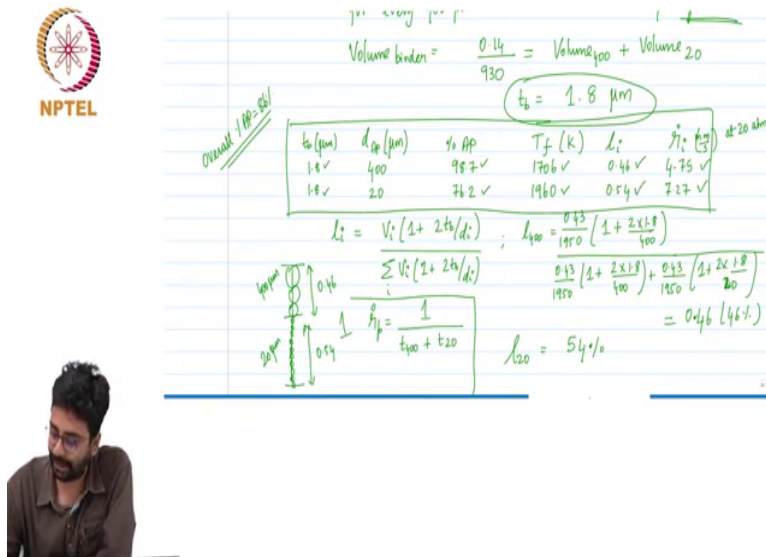 NPTEL
Volume binder = 0.14/930 = Volume400 + Volume20
tb = 1.8 μm
Overall % AP = 86%
tb (μm) dAP (μm) % AP Tf (K) li ṙi (mm/s) at 20 atm
1.8 ✓ 400 98.7 ✓ 1706 ✓ 0.46 ✓ 4.75 ✓
1.8 ✓ 20 76.2 ✓ 1960 ✓ 0.54 ✓ 7.27 ✓
li = Vi (1 + 2tb/di) / Σi Vi (1 + 2tb/di) ; l400 = 0.43/1950 (1 + 2x1.8/400) / 0.43/1950 (1 + 2x1.8/400) + 0.43/1950 (1 + 2x1.8/20)
= 0.46 (46%)
400 μm 0.46
1
20 μm 0.54
ṙb = 1 / t400 + t20
l20 = 54%